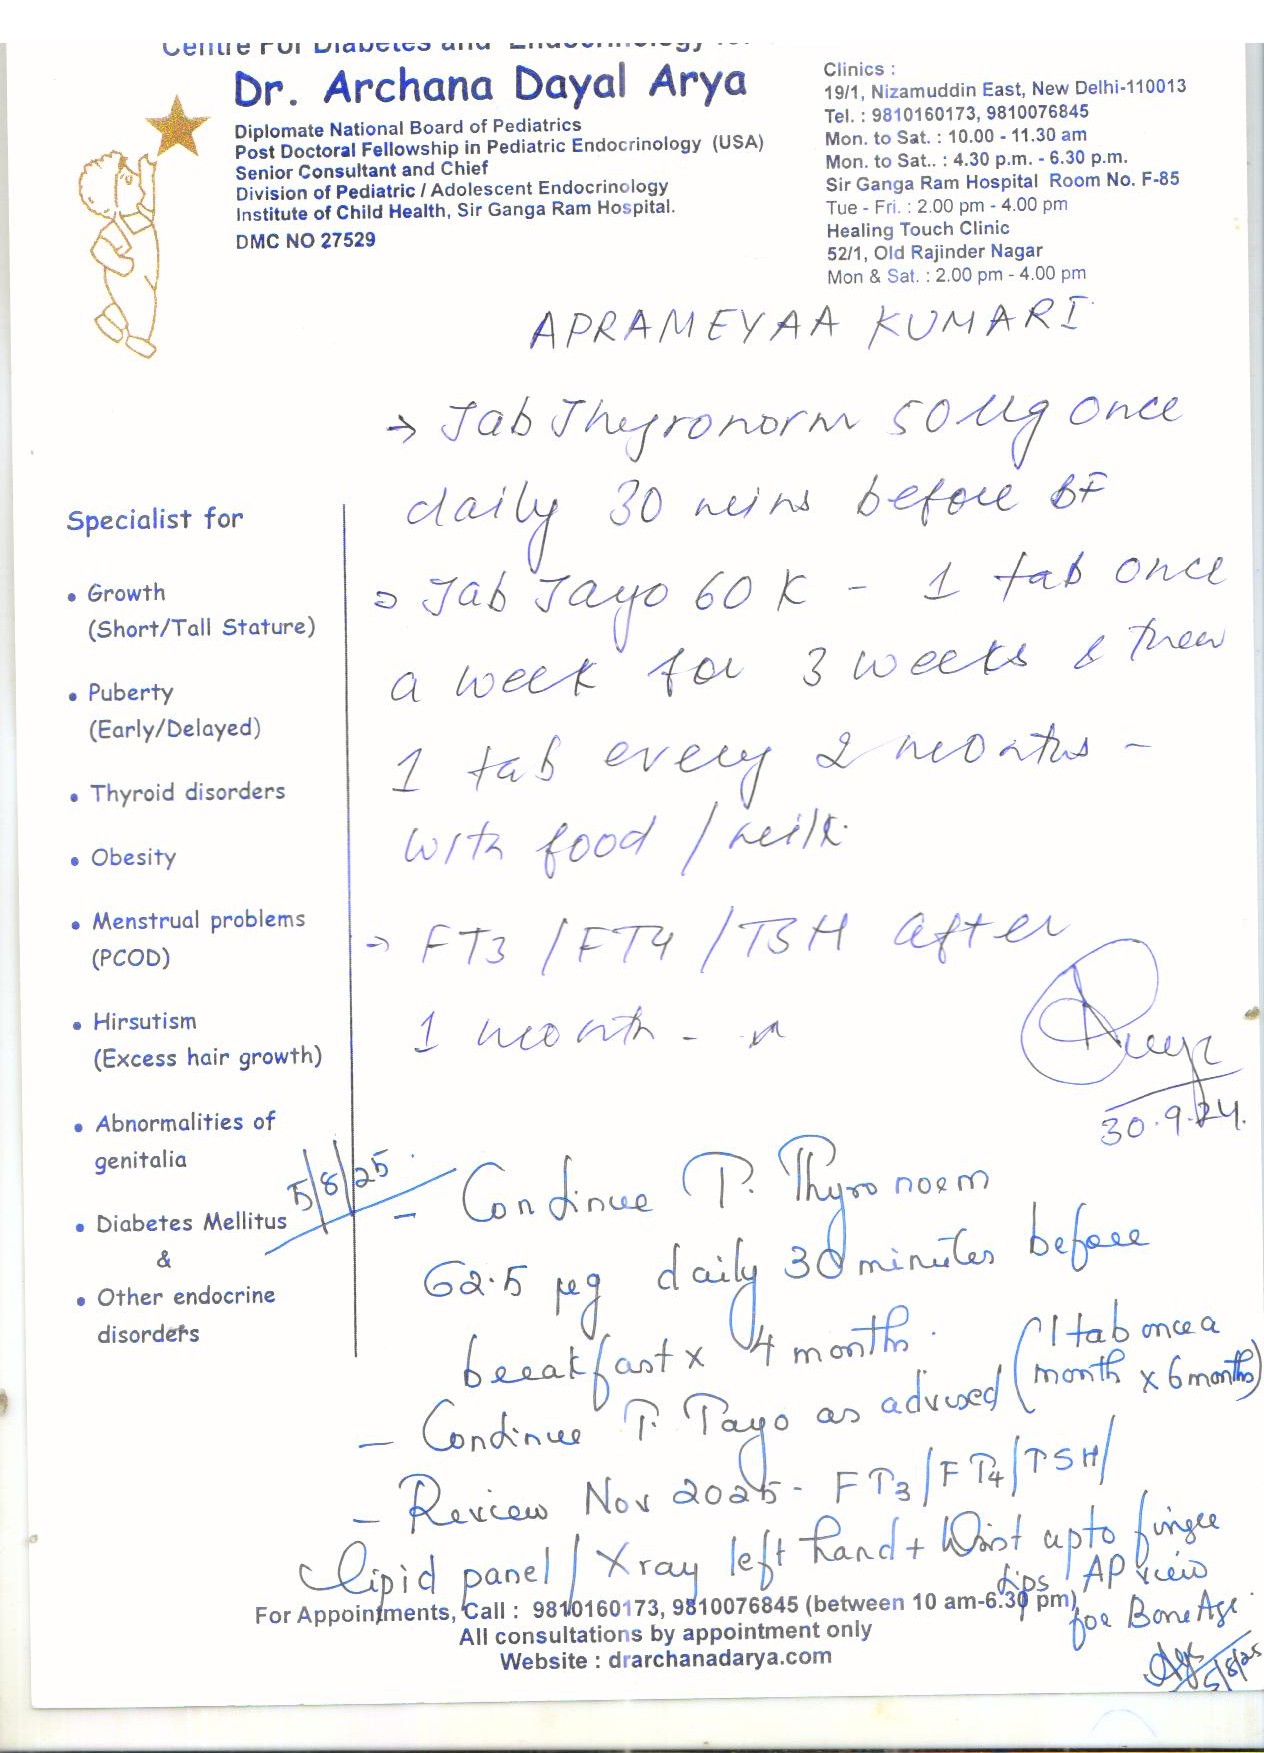 Centre For Diabetes and Endocrinology for
Dr. Archana Dayal Arya
Diplomate National Board of Pediatrics
Post Doctoral Fellowship in Pediatric Endocrinology (USA)
Senior Consultant and Chief
Division of Pediatric / Adolescent Endocrinology
Institute of Child Health, Sir Ganga Ram Hospital.
DMC NO 27529
Clinics :
19/1, Nizamuddin East, New Delhi-110013
Tel. : 9810160173, 9810076845
Mon. to Sat. : 10.00 - 11.30 am
Mon. to Sat.. : 4.30 p.m. - 6.30 p.m.
Sir Ganga Ram Hospital Room No. F-85
Tue - Fri. : 2.00 pm - 4.00 pm
Healing Touch Clinic
52/1, Old Rajinder Nagar
Mon & Sat. : 2.00 pm - 4.00 pm
APRAMEYAA KUMARI
→ Tab Thyronorm 50 ug once
daily 30 mins before BF
→ Tab Tayo 60 K - 1 tab once
a week for 3 weeks & then
1 tab every 2 months -
with food / milk.
→ FT3 / FT4 / TSH after
1 month -
30.9.24.
Specialist for
• Growth
(Short/Tall Stature)
• Puberty
(Early/Delayed)
• Thyroid disorders
• Obesity
• Menstrual problems
(PCOD)
• Hirsutism
(Excess hair growth)
• Abnormalities of
genitalia
• Diabetes Mellitus
&
• Other endocrine
disorders
5/8/25
- Continue T. Thyronorm
62.5 µg daily 30 minutes before
breakfast x 4 months.
- Continue T. Tayo as advised (1 tab once a
month x 6 months)
- Review Nov 2025 - FT3/FT4/TSH/
lipid panel / Xray left hand + Wrist upto finger
tips / AP view
for Bone Age.
5/8/25
For Appointments, Call : 9810160173, 9810076845 (between 10 am-6.30 pm)
All consultations by appointment only
Website : drarchanadarya.com